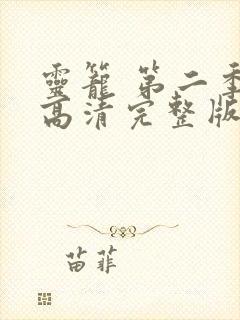 靈籠 第二季
高清完整版
苗菲